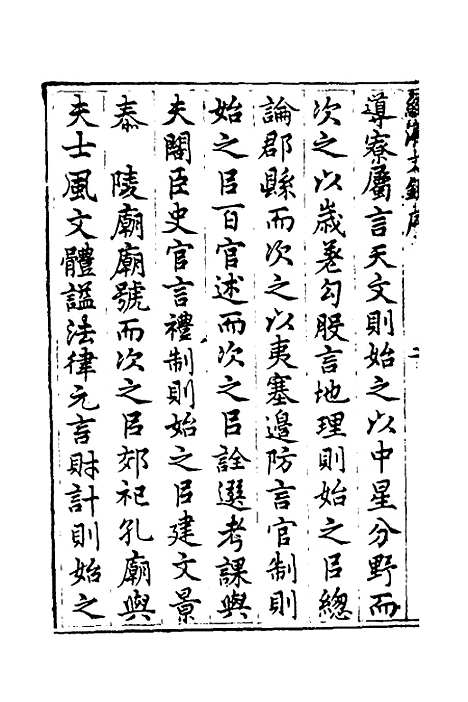 導寮屬言天文則始之以中星分野而
次之以歲差勾股言地理則始之㠯總
論郡縣而次之以夷塞邊防言官制則
始之㠯百官述而次之㠯詮選考課與
夫閣臣史官言禮制則始之㠯建文景
泰 陵廟廟號而次之㠯郊祀孔廟與
夫士風文體謚法律元言財計則始之